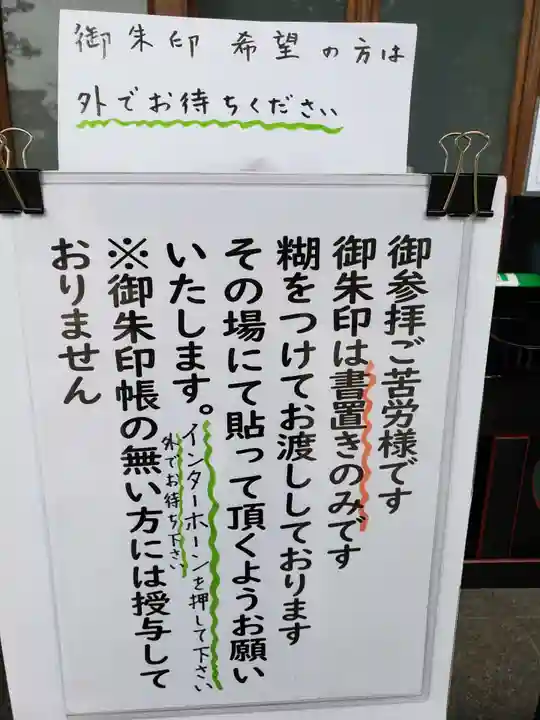 御朱印 希望の方は
外でお待ちください
御参拝ご苦労様です
御朱印は書置きのみです
糊をつけてお渡ししております
その場にて貼って頂くようお願い
いたします。
インターホーンを押して下さい
外でお待ち下さい
※御朱印帳の無い方には授与して
おりません